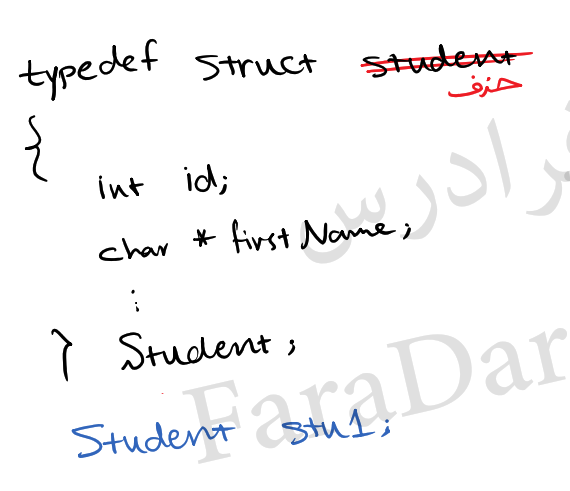 typedef struct student
حذف
{
int id;
char * firstName;
⋮
} Student;
Student stu1;
فرادرس
FaraDar